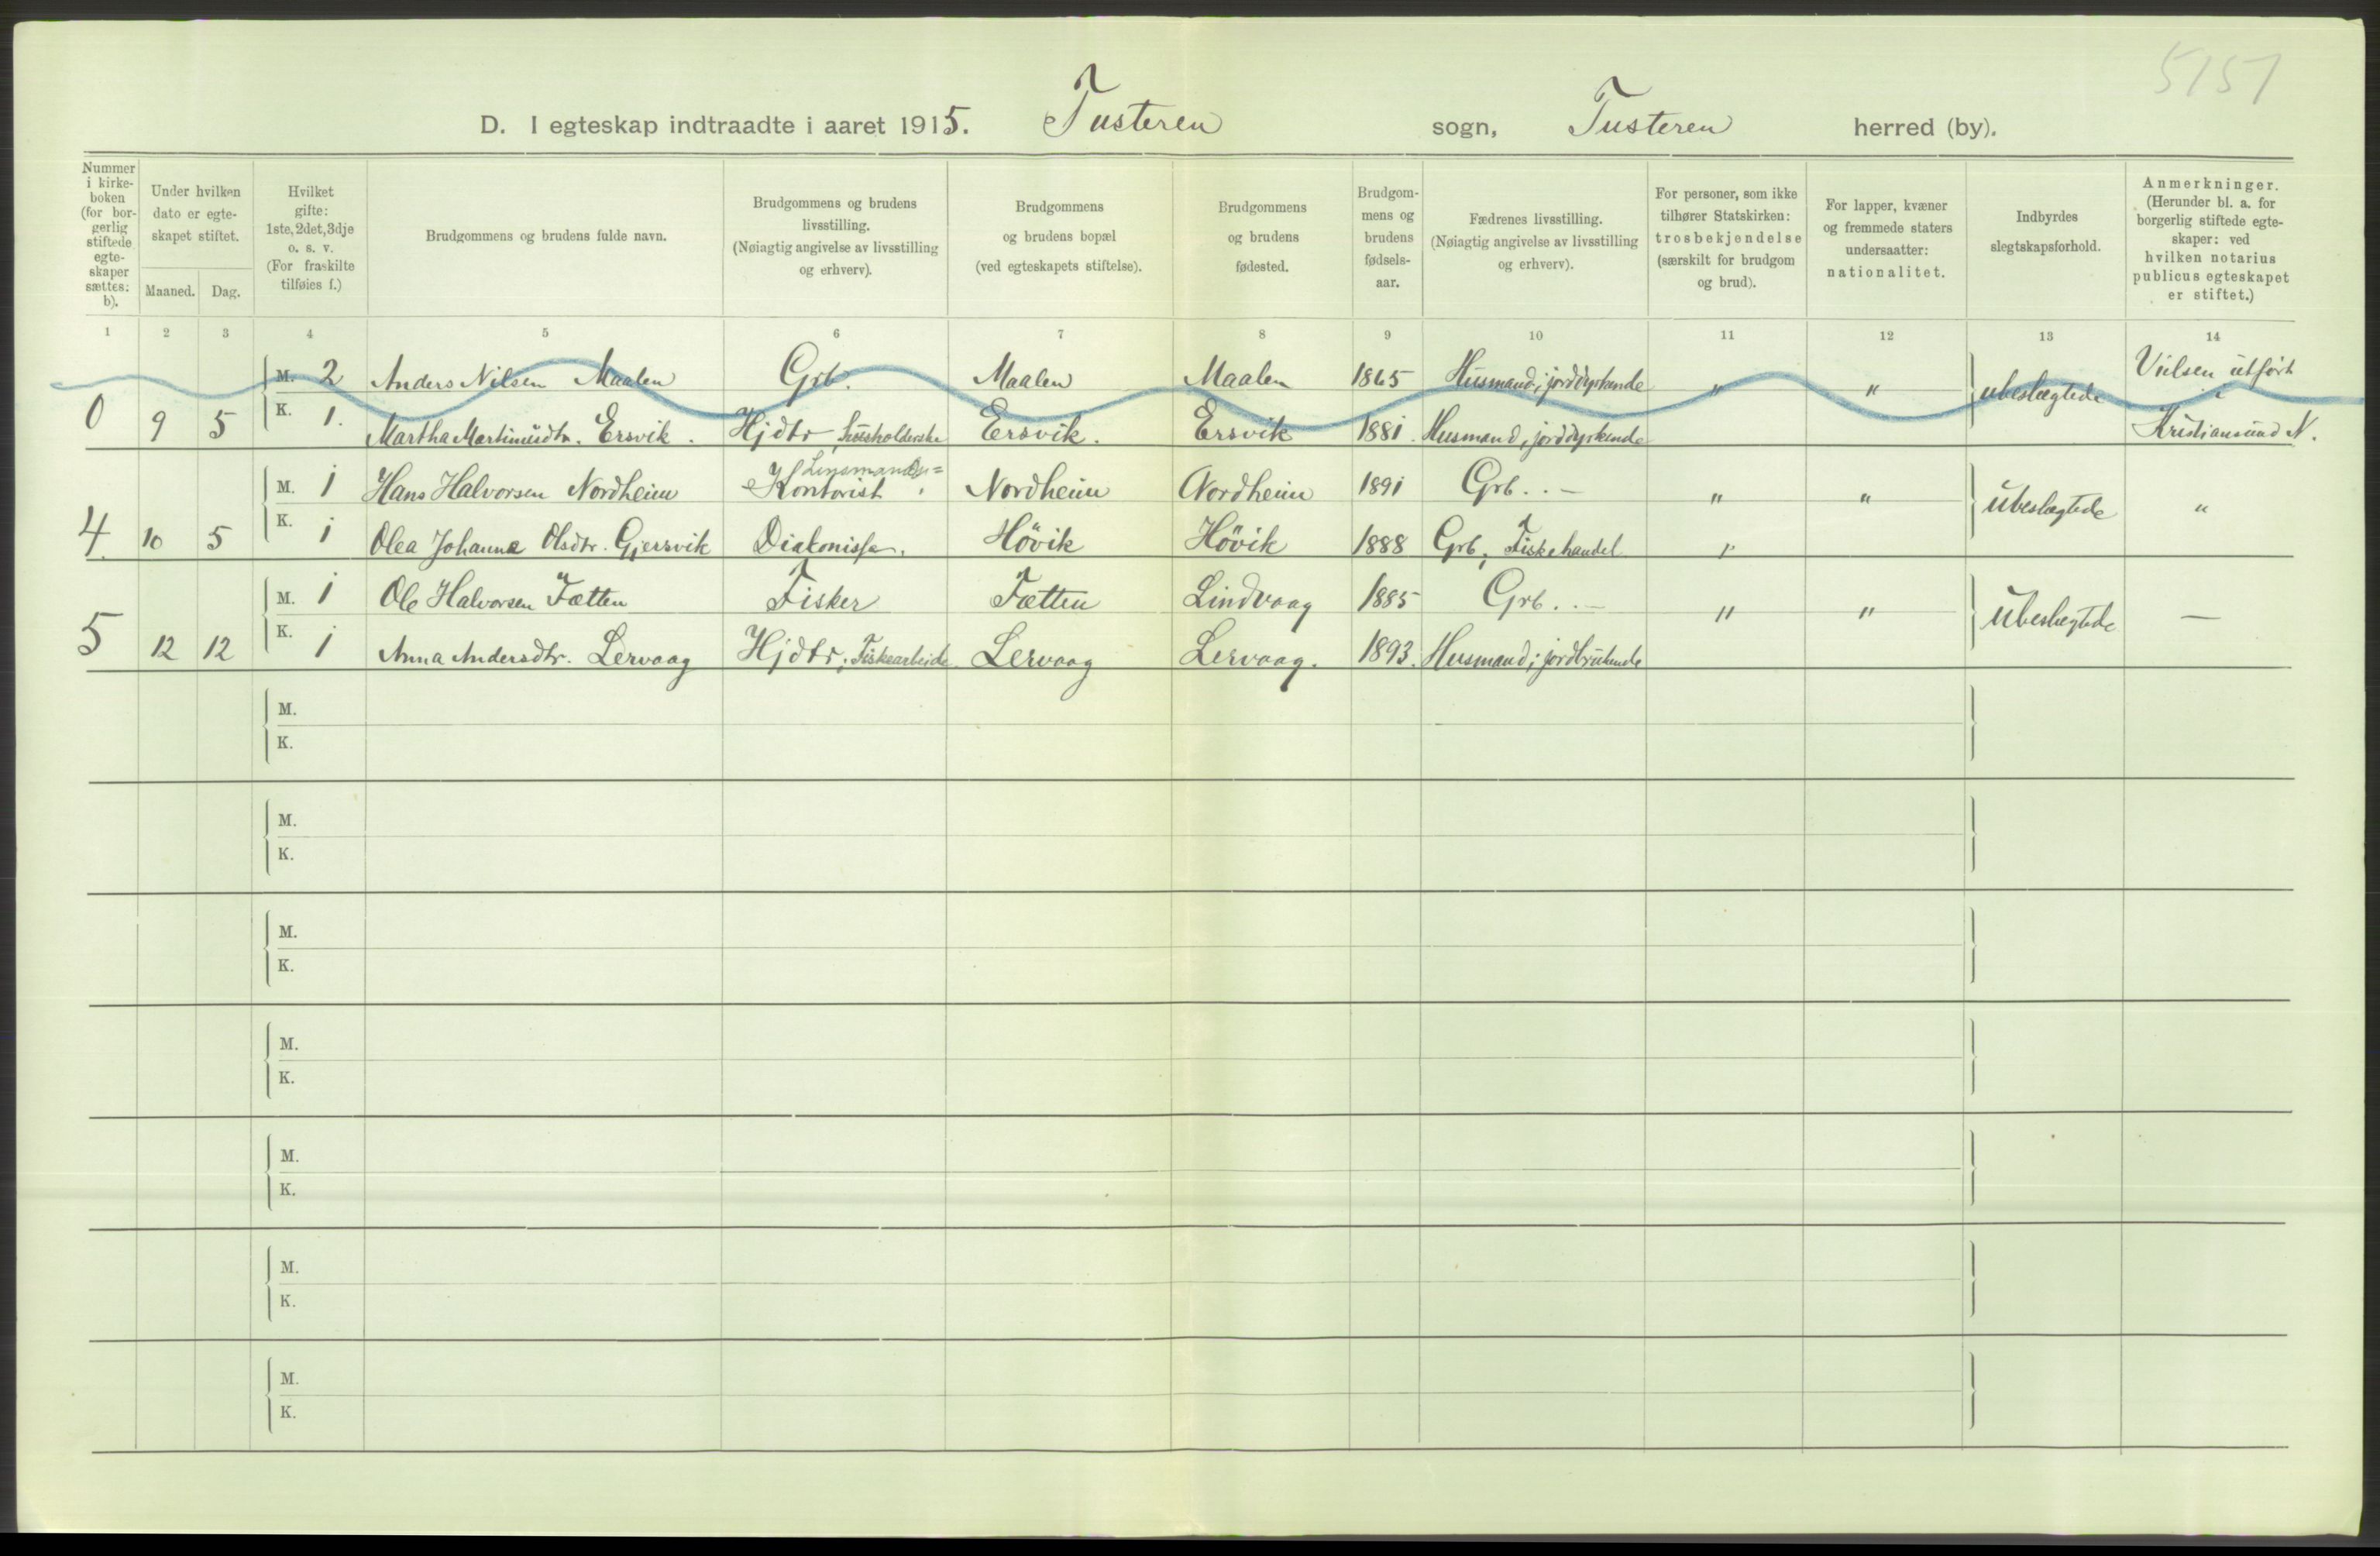 5151
D. I egteskap indtraadte i aaret 1915. Tusteren sogn, Tusteren herred (by).
Nummer i kirke- boken (for bor- gerlig stiftede egte- skaper sættes: b).
Under hvilken dato er egte- skapet stiftet.
Maaned. Dag.
Hvilket gifte: 1ste, 2det, 3dje o. s. v. (For fraskilte tilføies f.)
Brudgommens og brudens fulde navn.
Brudgommens og brudens livsstilling. (Nøiagtig angivelse av livsstilling og erhverv).
Brudgommens og brudens bopæl (ved egteskapets stiftelse).
Brudgommens og brudens fødested.
Brudgom- mens og brudens fødsels- aar.
Fædrenes livsstilling. (Nøiagtig angivelse av livsstilling og erhverv).
For personer, som ikke tilhører Statskirken: trosbekjendelse (særskilt for brudgom og brud).
For lapper, kvæner og fremmede staters undersaatter: nationalitet.
Indbyrdes slegtskapsforhold.
Anmerkninger. (Herunder bl. a. for borgerlig stiftede egte- skaper: ved hvilken notarius publicus egteskapet er stiftet.)
1 2 3 4 5 6 7 8 9 10 11 12 13 14
M. 2 Anders Nilsen Maalen Grb. Maalen Maalen 1865 Husmand; jorddyrkende " " ubeslægtede Vielsen utført i
0 9 5 K. 1. Martha Martinusdtr. Ersvik. Hjdtr - husholderske Ersvik. Ersvik 1881. Husmand, jorddyrkende Kristiansund N.
M. 1 Hans Halvorsen Nordheim Lensmands= Kontorist. Nordheim Nordheim 1891 Grb. . - " " ubeslægtede "
4. 10 5 K. 1 Olea Johanna Olsdtr. Gjersvik Diakonisse. Hövik Hövik 1888 Grb; Fiskehandel "
M. 1 Ole Halvorsen Fætten Fisker Fætten Lindvaag 1885 Grb. . - " " ubeslægtede —
5 12 12 K. 1 Anna Andersdtr. Lervaag Hjdtr; Fiskearbeide Lervaag Lervaag. 1893. Husmand; jordbrukende
M.
K.
M.
K.
M.
K.
M.
K.
M.
K.
M.
K.
M.
K.